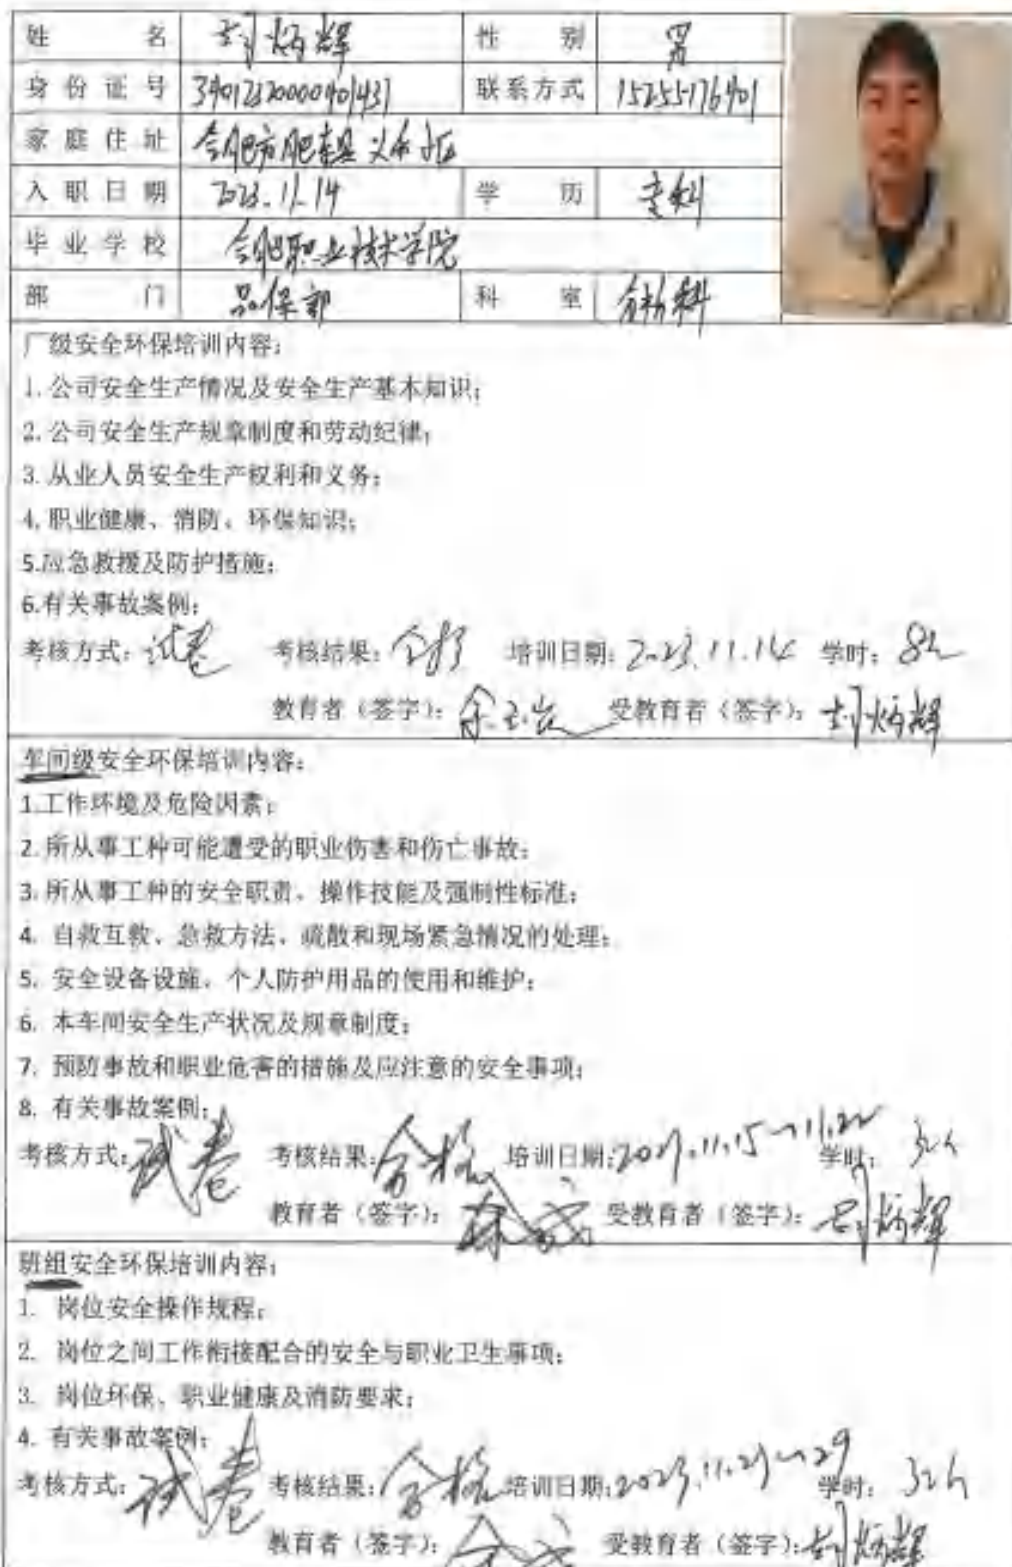 姓名 刘炳辉 性别 男
身份证号 联系方式 15255176901
家庭住址 合肥市肥东县
入职日期 2023.11.14 学历 专科
毕业学校 合肥职业技术学院
部门 品保部 科室
厂级安全环保培训内容:
1.公司安全生产情况及安全生产基本知识;
2.公司安全生产规章制度和劳动纪律;
3.从业人员安全生产权利和义务;
4.职业健康、消防、环保知识;
5.应急救援及防护措施;
6.有关事故案例;
考核方式:试卷 考核结果:合格 培训日期:2023.11.14 学时:8h
教育者(签字): 受教育者(签字):刘炳辉
车间级安全环保培训内容:
1.工作环境及危险因素;
2.所从事工种可能遭受的职业伤害和伤亡事故;
3.所从事工种的安全职责、操作技能及强制性标准;
4. 自救互救、急救方法、疏散和现场紧急情况的处理;
5. 安全设备设施、个人防护用品的使用和维护;
6. 本车间安全生产状况及规章制度;
7. 预防事故和职业危害的措施及应注意的安全事项;
8. 有关事故案例;
考核方式:试卷 考核结果:合格 培训日期:2023.11.15~11.22 学时:32h
教育者(签字): 受教育者(签字):刘炳辉
班组安全环保培训内容:
1. 岗位安全操作规程;
2. 岗位之间工作衔接配合的安全与职业卫生事项;
3. 岗位环保、职业健康及消防要求;
4. 有关事故案例;
考核方式:试卷 考核结果:合格 培训日期:2023.11.23~29 学时:32h
教育者(签字): 受教育者(签字):刘炳辉